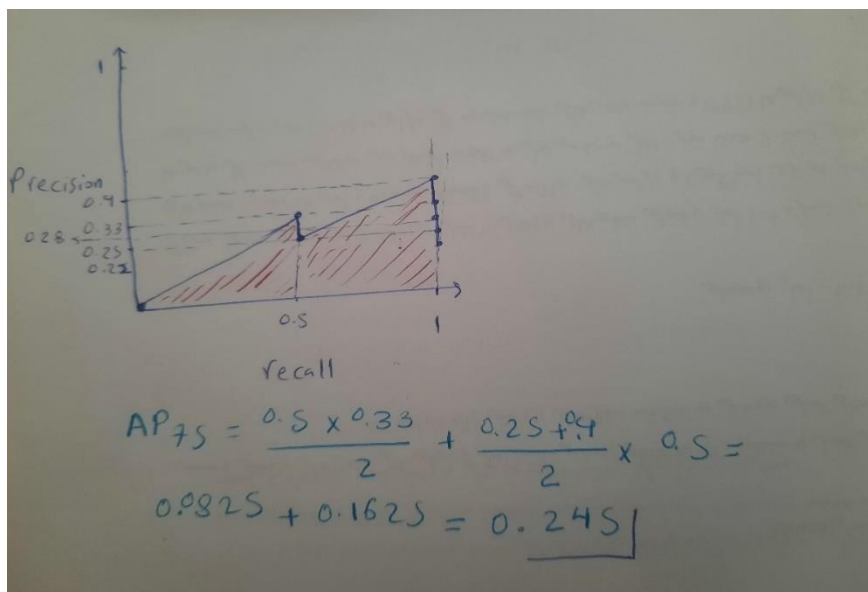 1
Precision
0.4
0.33
0.285
0.25
0.22
0.5
1
recall
AP75 = 0.5 x 0.33 / 2 + 0.25 + 0.4 / 2 x 0.5 =
0.0825 + 0.1625 = 0.245